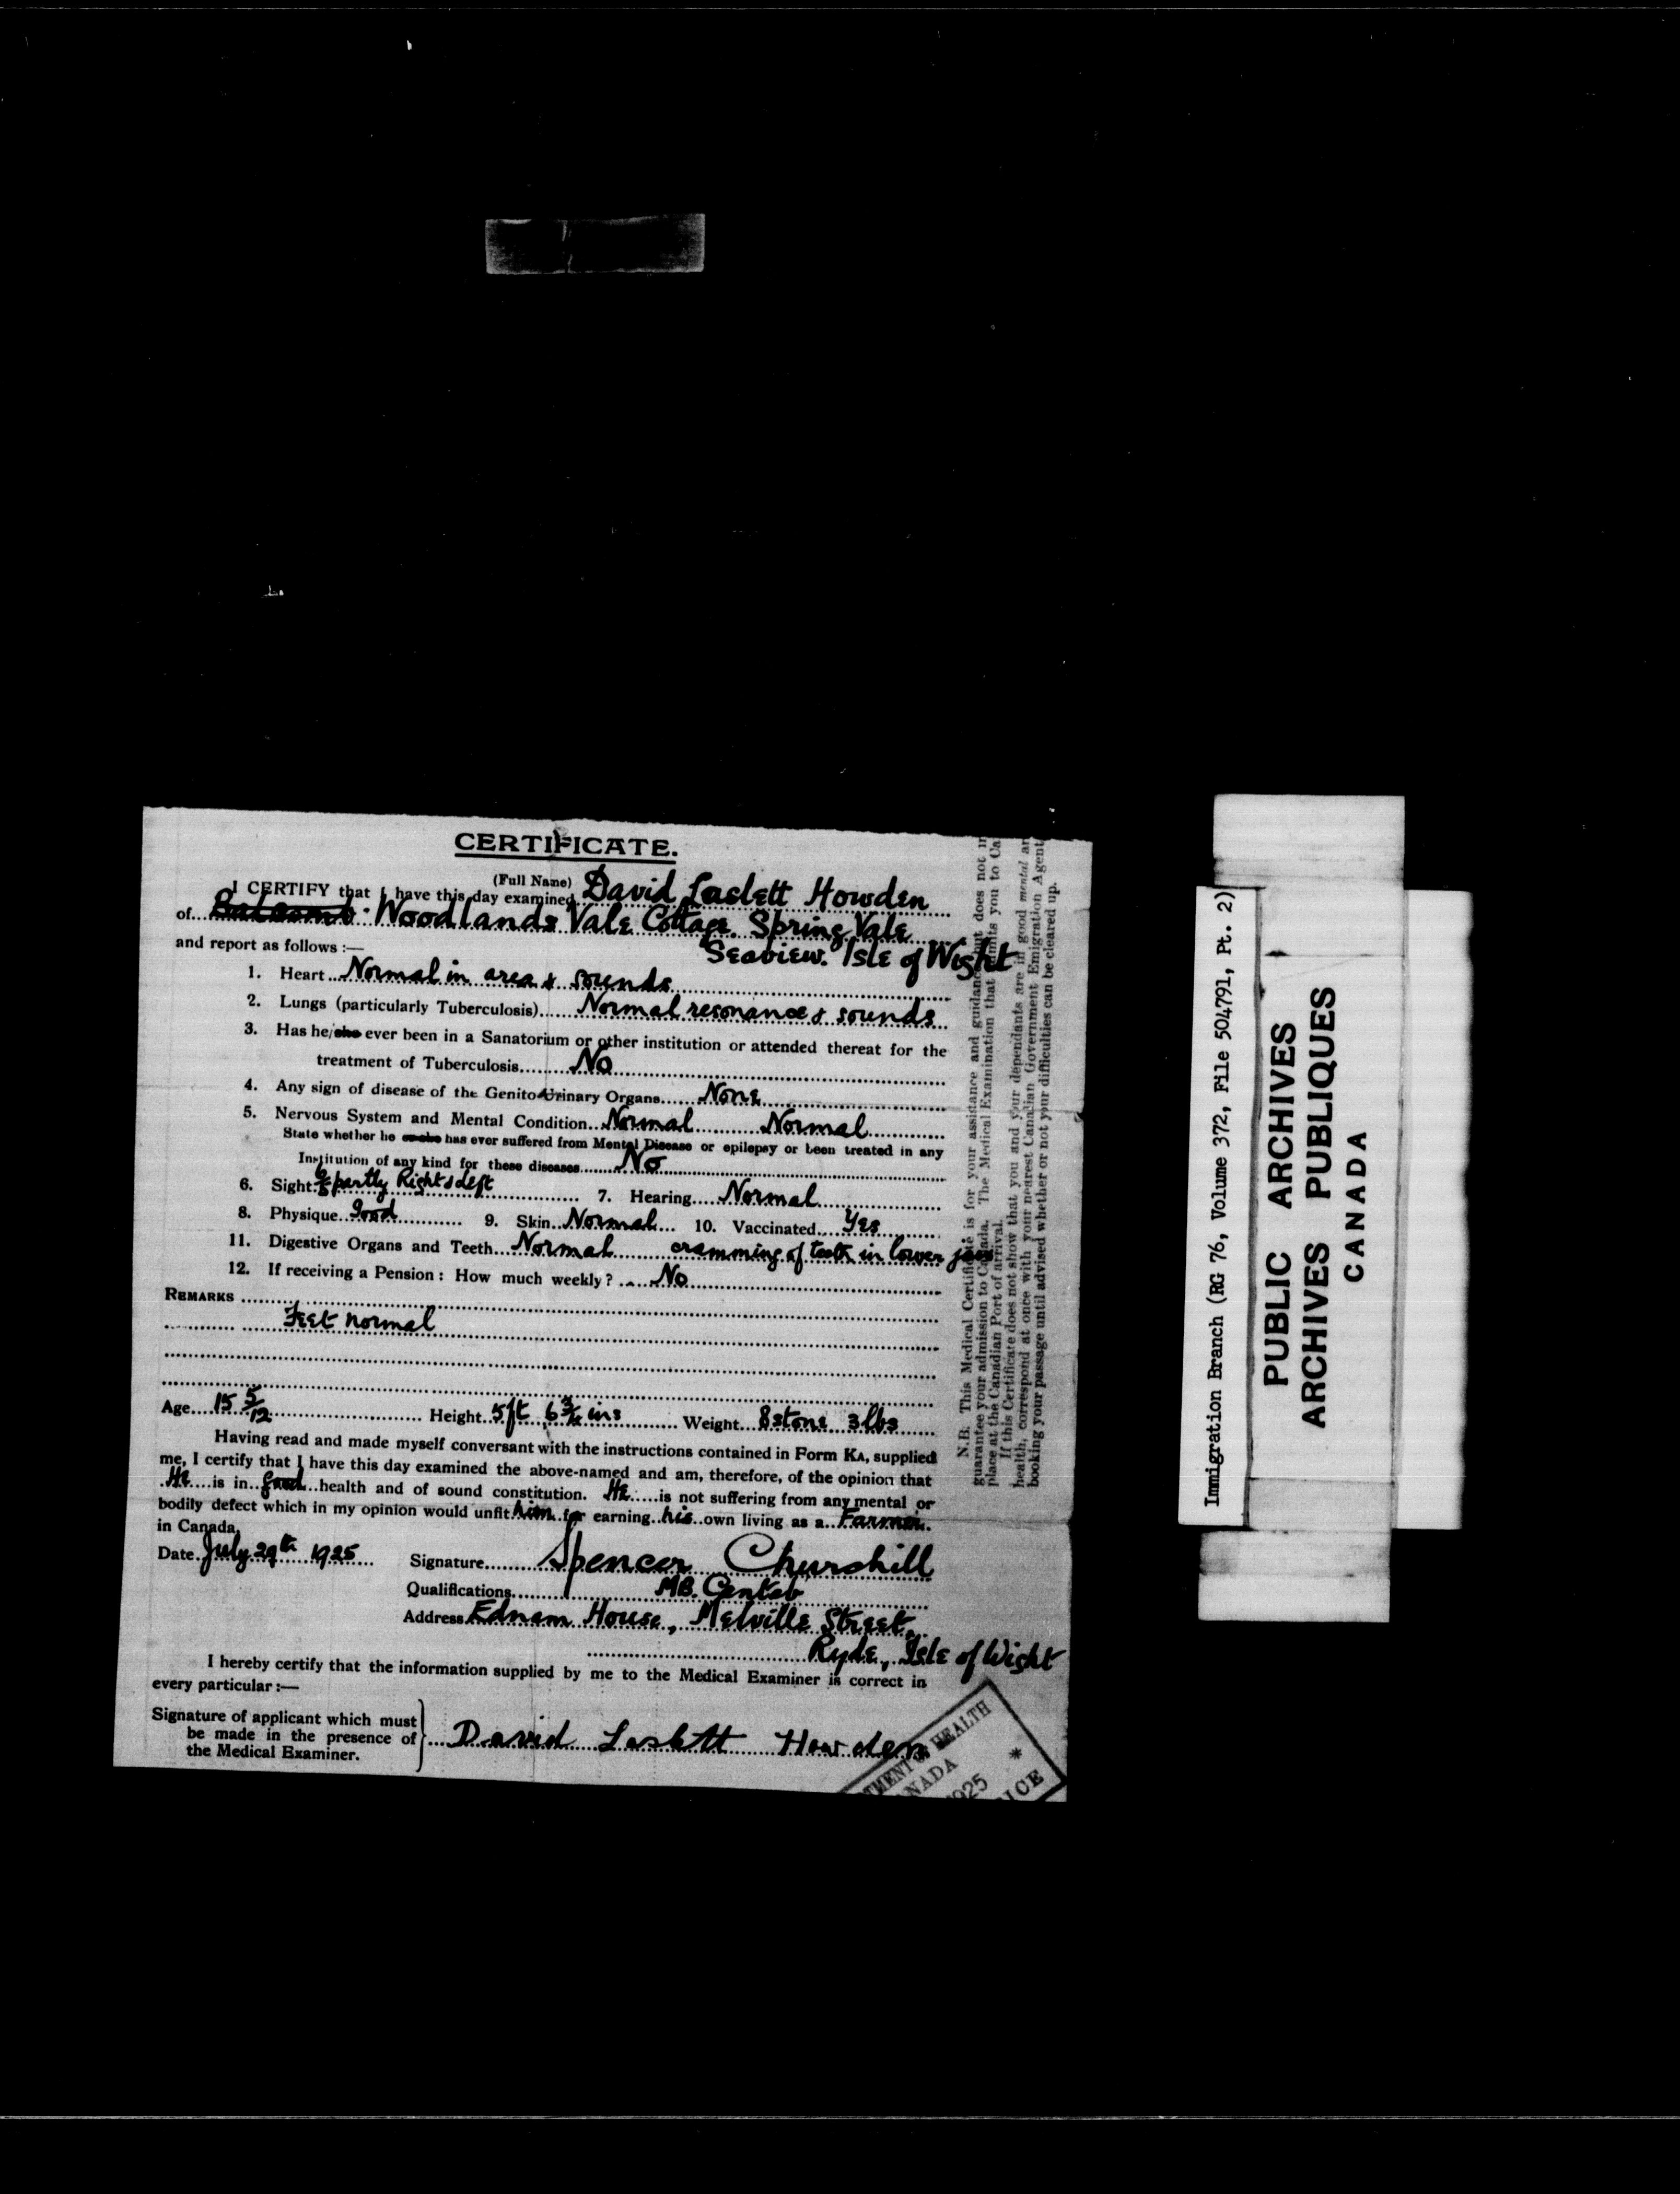 CERTIFICATE.
(Full Name)
I CERTIFY that I have this day examined David Laslett Howden
of Woodlands Vale Cottage. Spring Vale
Seaview. Isle of Wight
and report as follows :—
1. Heart Normal in area & sounds
2. Lungs (particularly Tuberculosis) Normal resonance & sounds
3. Has he/she ever been in a Sanatorium or other institution or attended thereat for the
treatment of Tuberculosis No
4. Any sign of disease of the Genito-Urinary Organs None
5. Nervous System and Mental Condition Normal Normal
State whether he or she has ever suffered from Mental Disease or epilepsy or been treated in any
Institution of any kind for these diseases No
6. Sight partly Right & Left 7. Hearing Normal
8. Physique Good 9. Skin Normal 10. Vaccinated Yes
11. Digestive Organs and Teeth Normal cramming of teeth in lower jaw
12. If receiving a Pension : How much weekly ? No
REMARKS
Feet normal
Age 15 5/12 Height 5 ft 6 3/4 ins Weight 8 stone 3 lbs
Having read and made myself conversant with the instructions contained in Form KA, supplied
me, I certify that I have this day examined the above-named and am, therefore, of the opinion that
He is in good health and of sound constitution. He is not suffering from any mental or
bodily defect which in my opinion would unfit him for earning his own living as a Farmer.
in Canada.
Date July 29th 1925 Signature Spencer Churchill
Qualifications MB. Cantab
Address Ednam House, Melville Street,
Ryde, Isle of Wight
I hereby certify that the information supplied by me to the Medical Examiner is correct in
every particular :—
Signature of applicant which must
be made in the presence of
the Medical Examiner.
David Laslett Howden
TMENT OF HEALTH
NADA
1925
ICE
N.B. This Medical Certificate is for your assistance and guidance but does not in
guarantee your admission to Canada. The Medical Examination that admits you to Ca
place at the Canadian Port of arrival.
If this Certificate does not show that you and your dependants are in good mental an
health, correspond at once with your nearest Canadian Government Emigration Agent
booking your passage until advised whether or not your difficulties can be cleared up.
Immigration Branch (RG 76, Volume 372, File 504791, Pt. 2)
PUBLIC ARCHIVES
ARCHIVES PUBLIQUES
CANADA